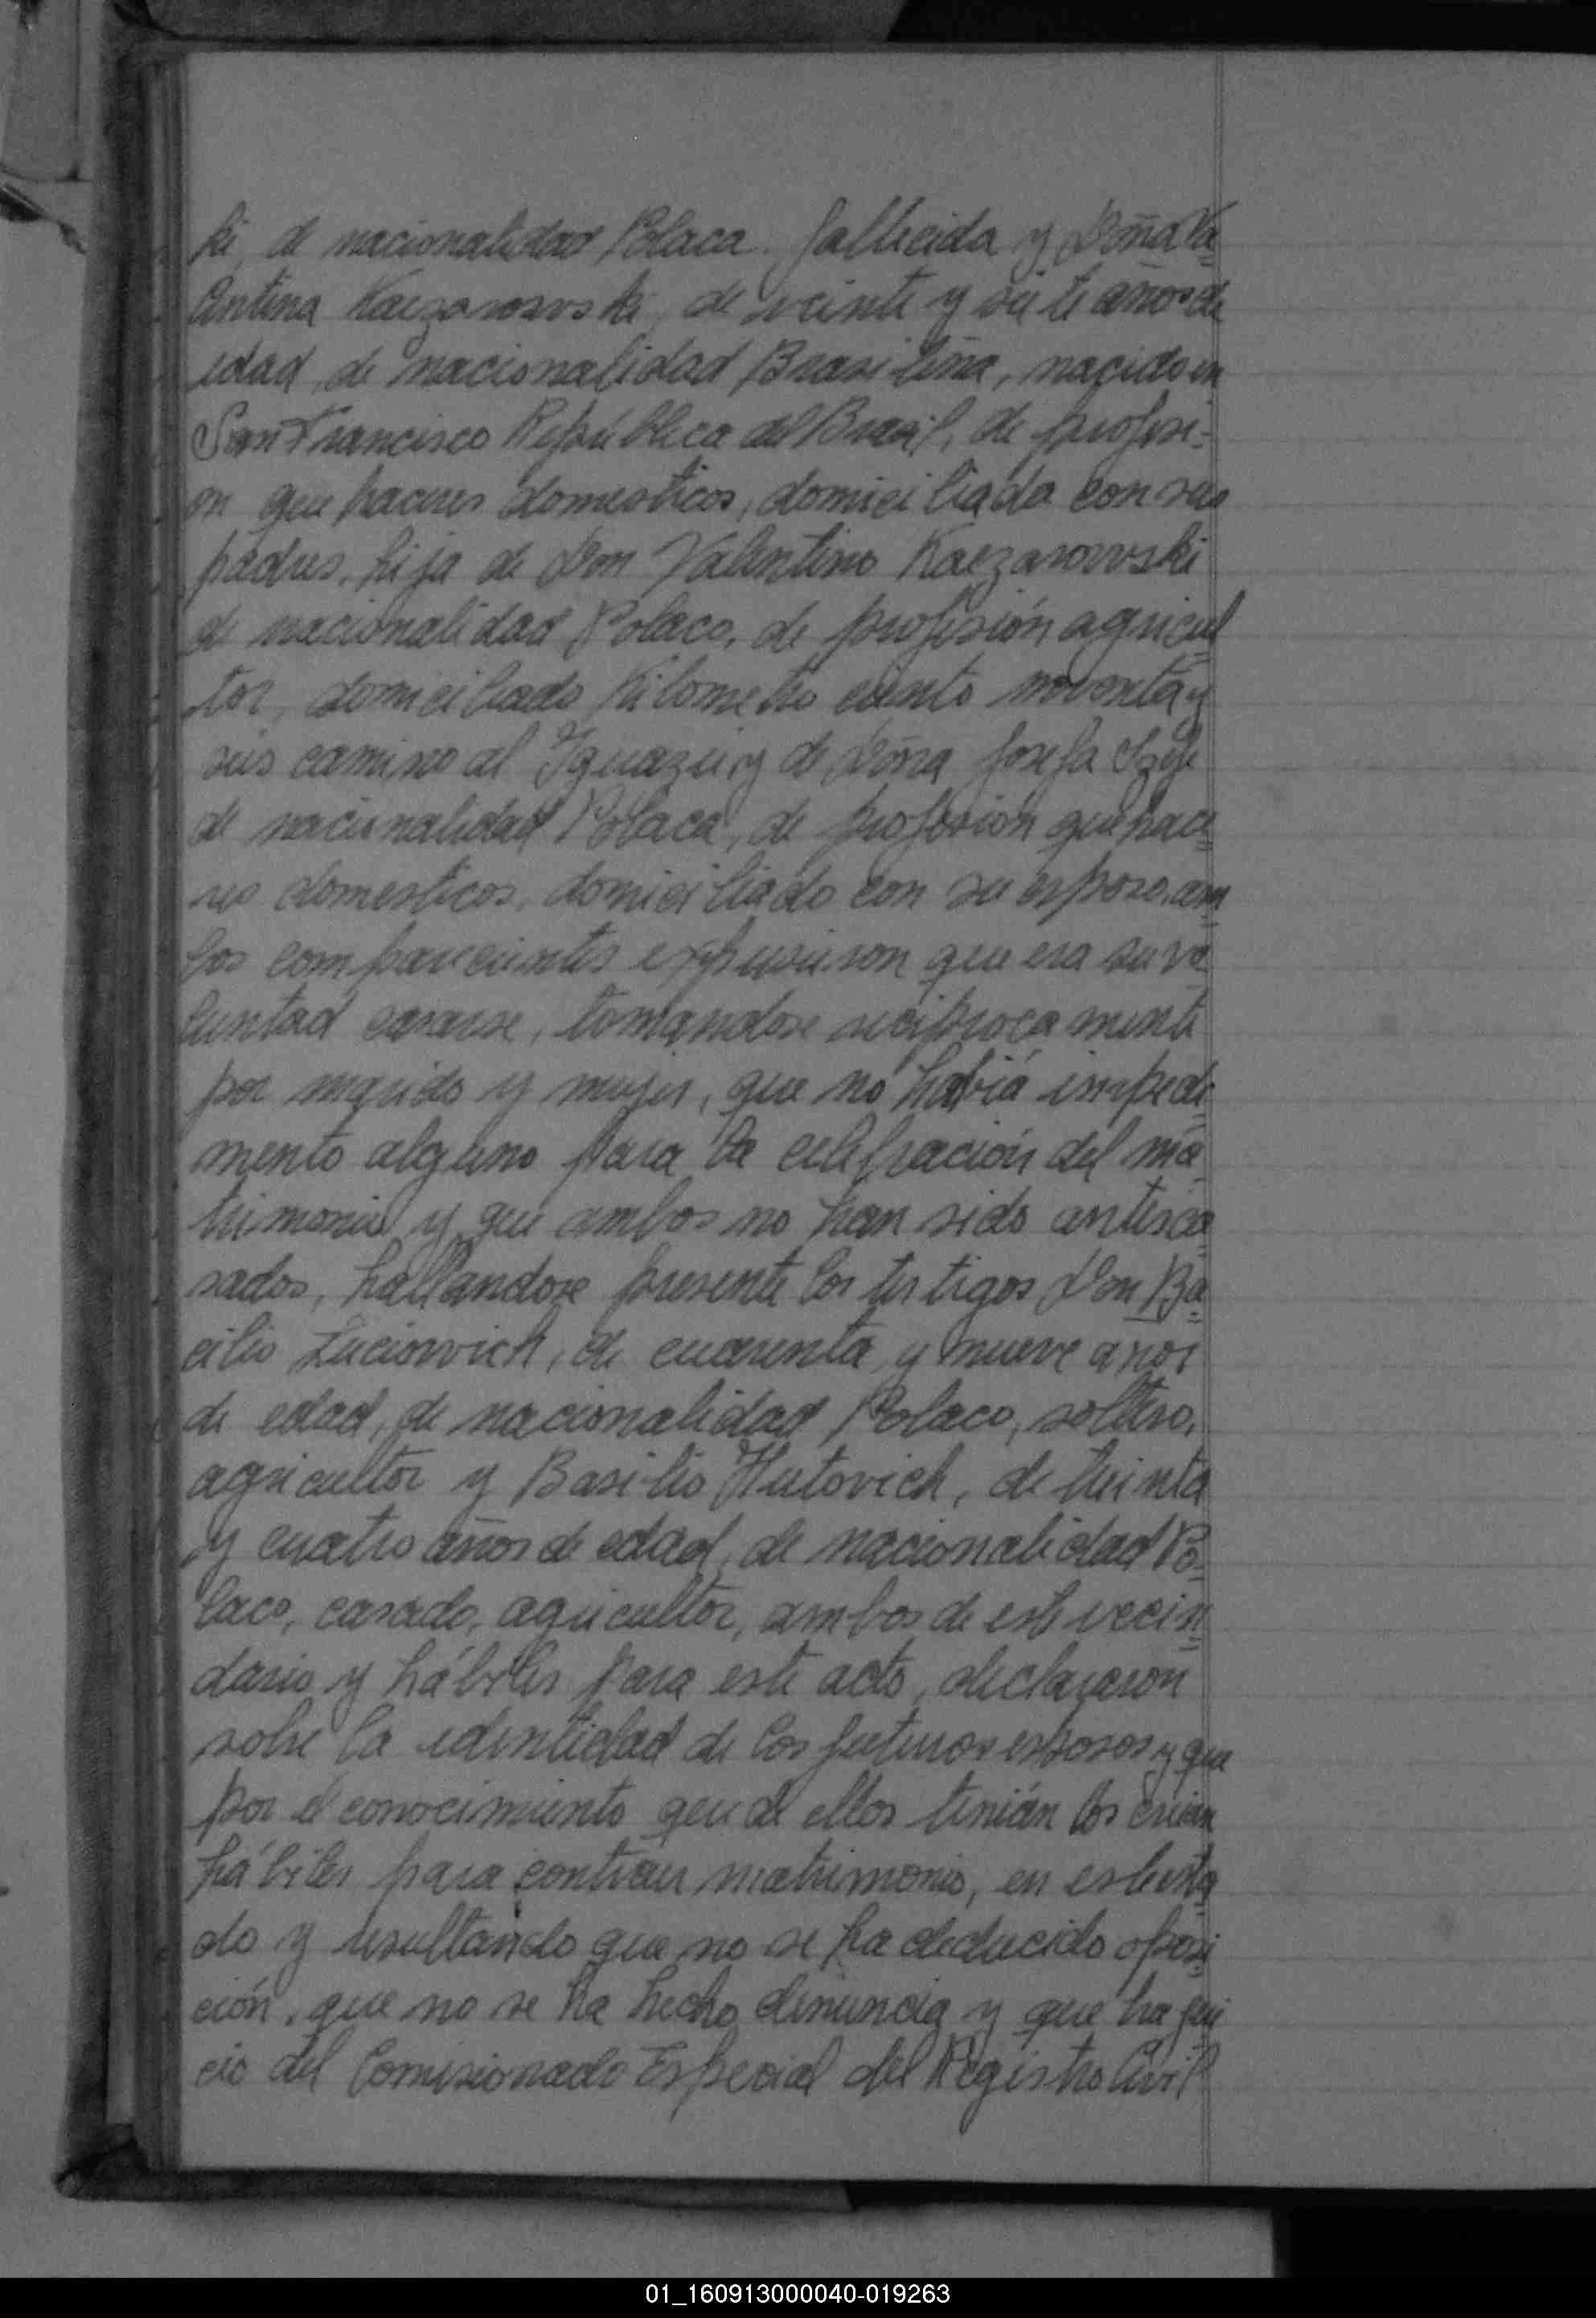 ki, de nacionalidad Polaca. fallecida y Doña Va
lentina Kaezarowski, de veinte y siete años de
edad, de nacionalidad Brasileña, nacido en
San Francisco República del Brasil, de profesi-
on que haceres domesticos, domiciliada con sus
padres, hija de Don Valentino Kaezarowski
de nacionalidad Polaco, de profesión agricul
tor, domiciliado Kilometro ciento noventa y
seis camino al Iguazú, y de Doña Josefa
de nacionalidad Polaca, de profesión quehace
res domesticos, domiciliado con su esposo, am
bos comparecientes expusieron que era su vo
luntad casarse, tomandose reciprocamente
por marido y mujer, que no había impedi
mento alguno para la celebración del ma
trimonio y que ambos no han sido antes ca
sados, hallandose presente los testigos Don Ba
cilio Luciowich, de cuarenta y nueve años
de edad, de nacionalidad Polaco, soltero,
agricultor y Basilio Hutovich, de treinta
y cuatro años de edad, de nacionalidad Po
laco, casado, agricultor, ambos de este vecin
dario y hábiles para este acto, declararon
sobre la identidad de los futuros esposos y que
por el conocimiento que de ellos tenián los creian
hábiles para contraer matrimonio, en este esta
do y resultando que no se ha deducido oposi
ción, que no se ha hecho denuncia y que ha jui
cio del Comisionado Especial del Registro Civil
01_160913000040-019263